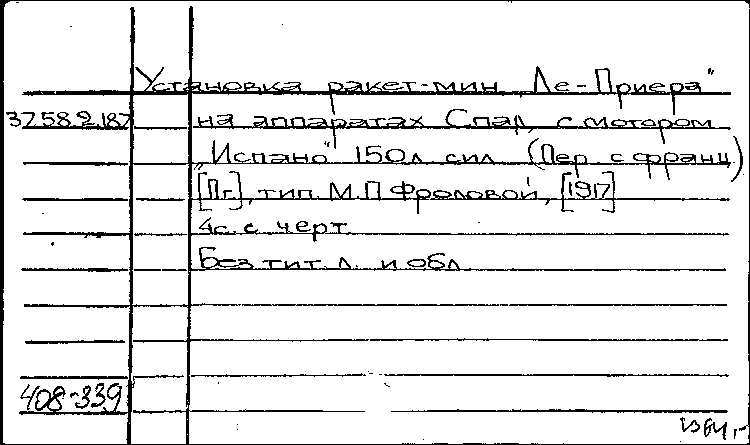 Установка ракет-мин „Ле-Приера"
37.58.2.187 на аппаратах Спад, с мотором
„Испано" 150 л. сил. (Пер. с франц.)
[Пг.], тип. М.П. Фроловой, [1917]
4 с. с черт.
Без тит. л. и обл.
408-339